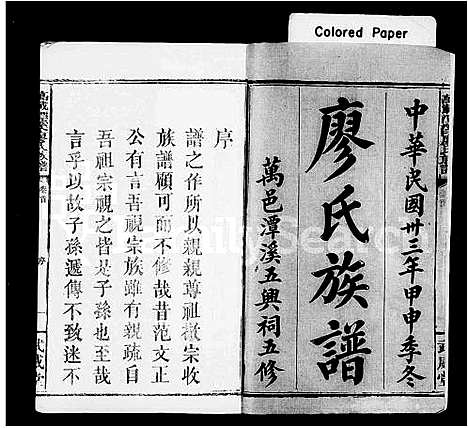 Colored Paper
中華民國卅三年甲申季冬
廖氏族譜
萬邑潭溪五興祠五修
武威堂
序
譜之作所以親親尊祖敬宗收
族譜顧可而不修哉昔范文正
公有言吾視宗族雖有親疏自
吾祖宗視之皆是子孫也至哉
言乎以故子孫遞傳不致迷不
序
一
武威堂
FamilySearch